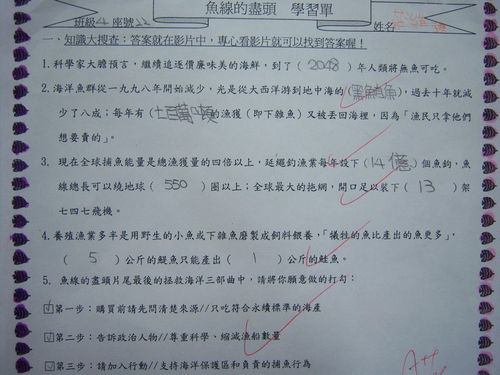 魚線的盡頭 學習單
班級4 座號22 姓名
一、知識大搜查：答案就在影片中，專心看影片就可以找到答案喔！
1.科學家大膽預言，繼續追逐價廉味美的海鮮，到了（2048）年人類將無魚可吃。
2.海洋魚群從一九九八年開始減少，光是從大西洋游到地中海的（黑鮪魚），過去十年就減
少了八成；每年有（七百萬噸的漁獲（即下雜魚）又被丟回海裡，因為「漁民只拿他們
想要賣的」。
3.現在全球捕魚能量是總漁獲量的四倍以上，延繩釣漁業每年設下（14億）個魚鉤，魚
線總長可以繞地球（550）圈以上；全球最大的拖網，開口足以裝下（13）架
七四七飛機。
4.養殖漁業多半是用野生的小魚或下雜魚磨製成飼料餵養，「犧牲的魚比產出的魚更多」，
（5）公斤的鯷魚只能產出（1）公斤的鮭魚。
5.魚線的盡頭片尾最後的拯救海洋三部曲中，請將你願意做的打勾：
☑第一步：購買前請先問清楚來源//只吃符合永續標準的海產
☑第二步：告訴政治人物//尊重科學、縮減漁船數量
☑第三步：請加入行動//支持海洋保護區和負責的捕魚行為
A++